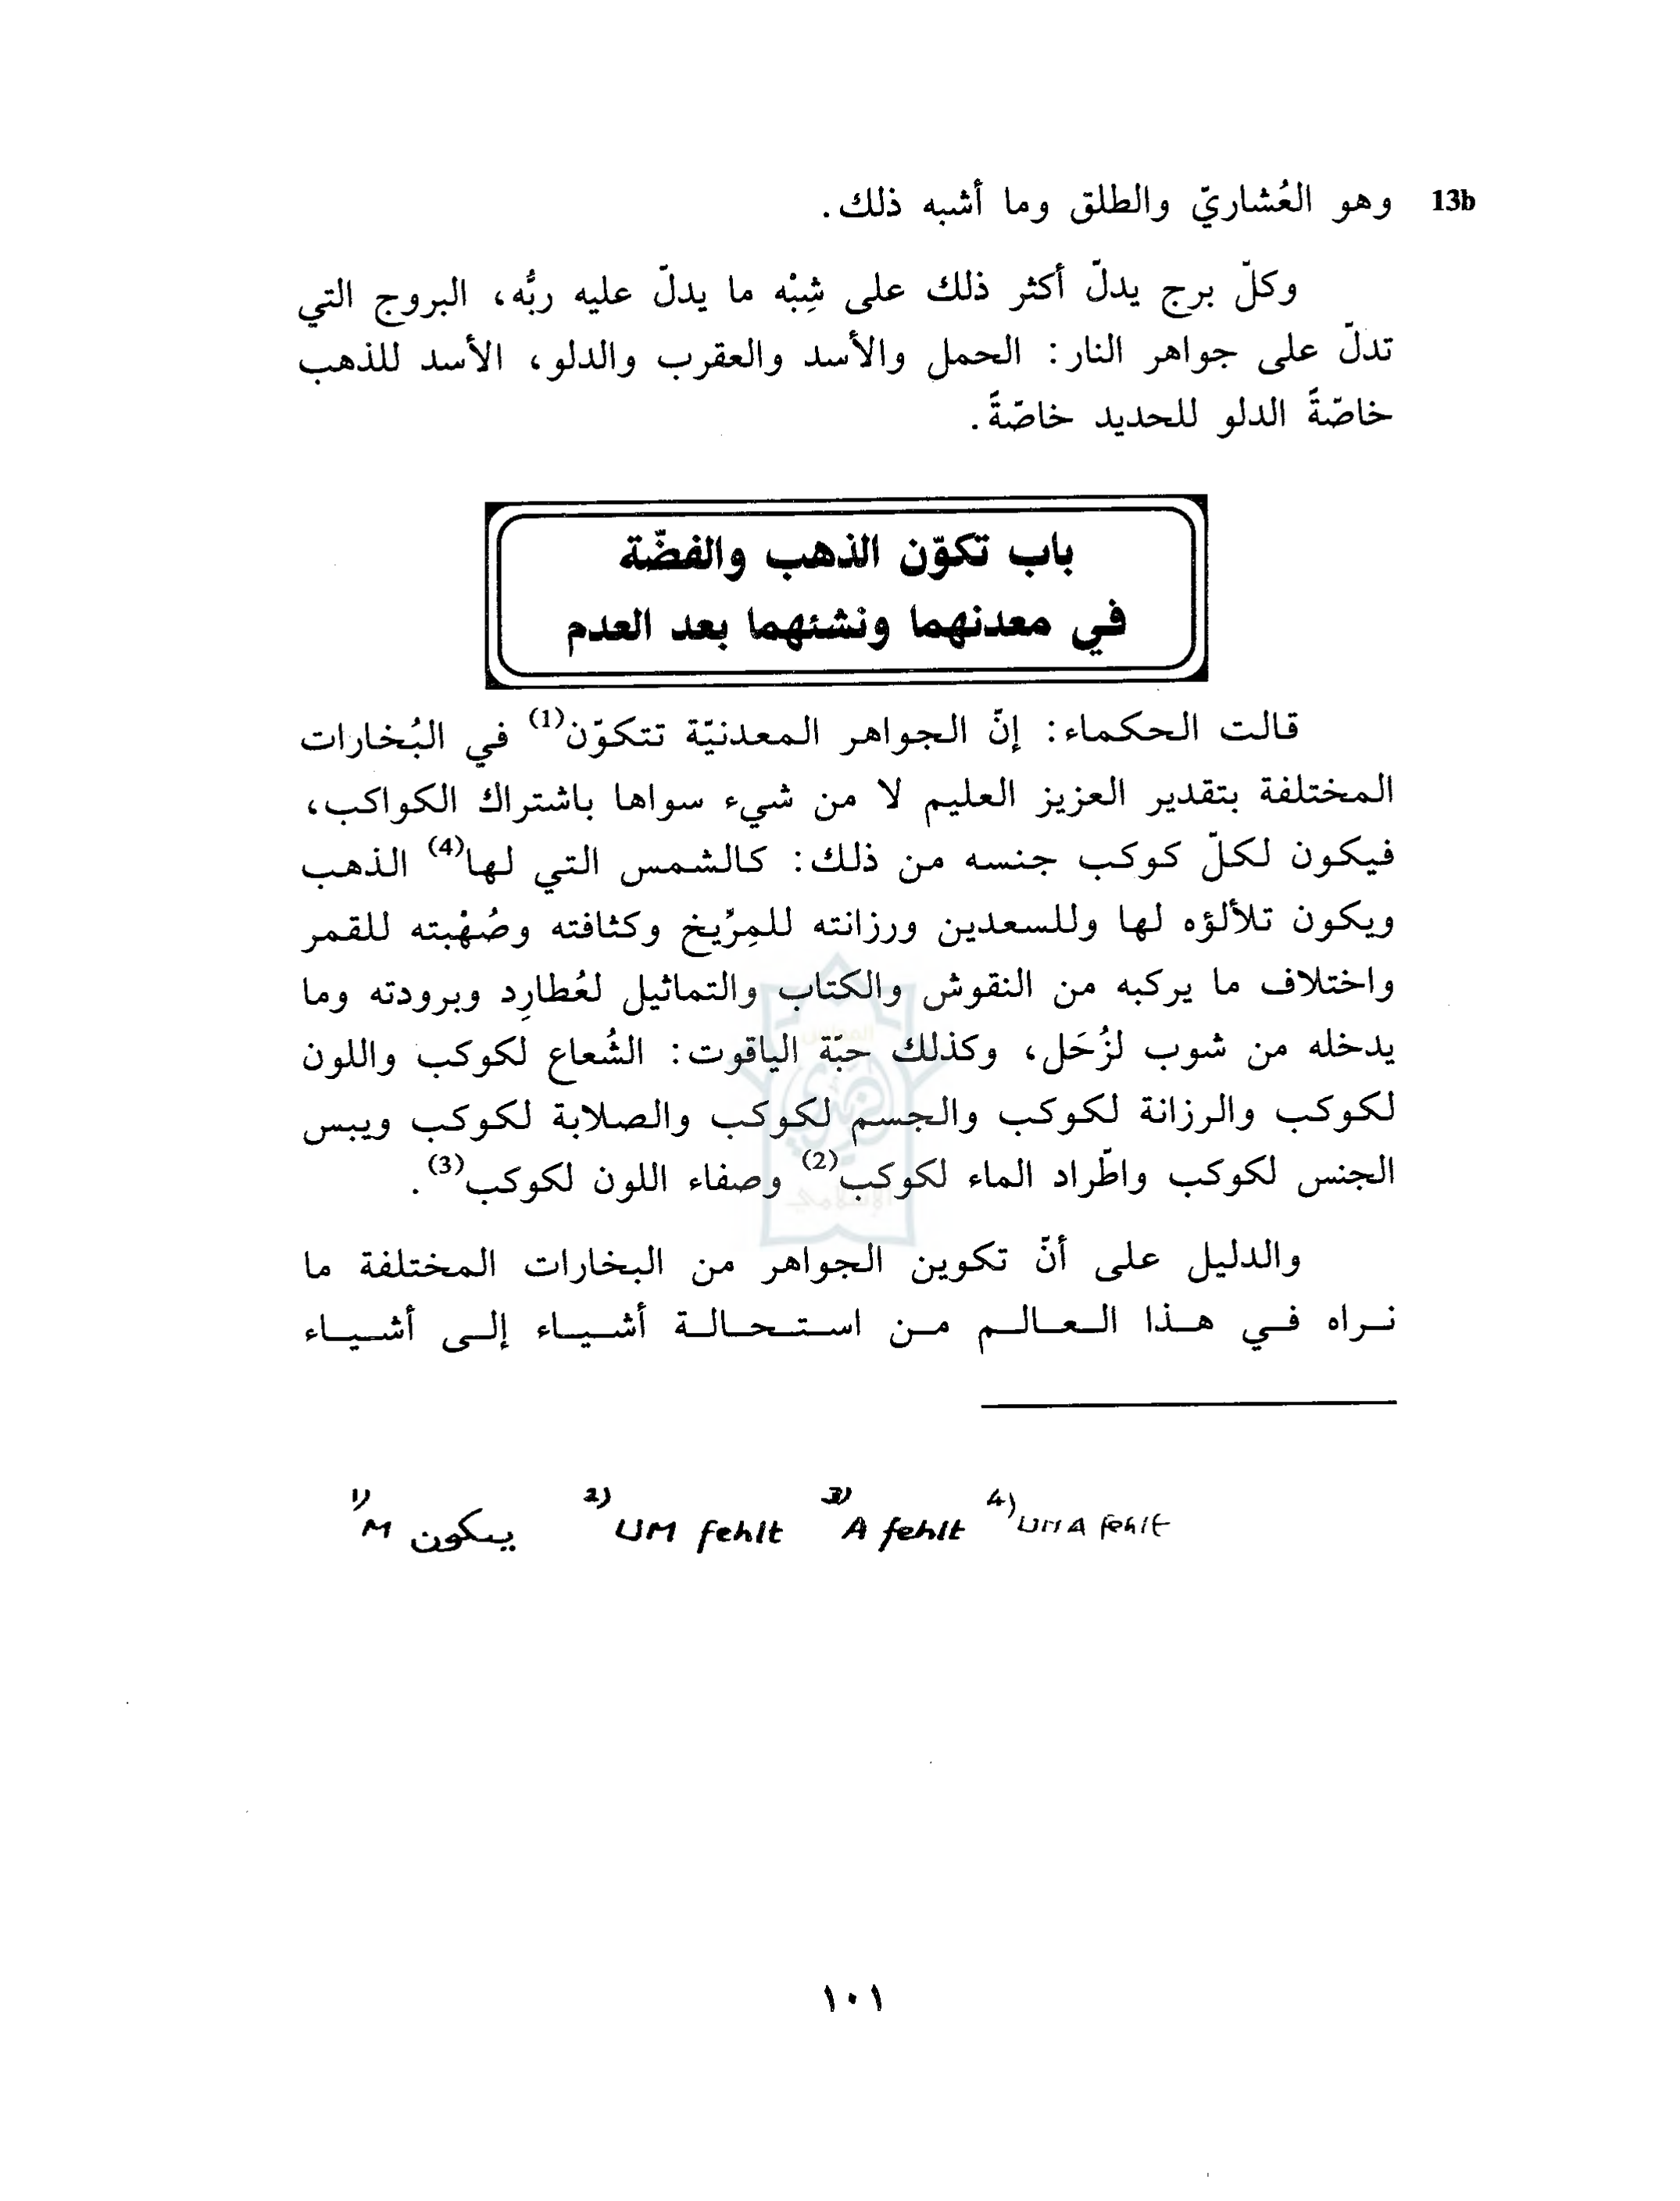 13b وهو العُشاريّ والطلق وما أشبه ذلك.
وكلّ برج يدلّ أكثر ذلك على شِبْه ما يدلّ عليه ربُّه، البروج التي
تدلّ على جواهر النار: الحمل والأسد والعقرب والدلو، الأسد للذهب
خاصّةً الدلو للحديد خاصّةً.
باب تكوّن الذهب والفضّة
في معدنهما ونشئهما بعد العدم
قالت الحكماء: إنّ الجواهر المعدنيّة تتكوّن(1) في البُخارات
المختلفة بتقدير العزيز العليم لا من شيء سواها باشتراك الكواكب،
فيكون لكلّ كوكب جنسه من ذلك: كالشمس التي لها(4) الذهب
ويكون تلألؤه لها وللسعدين ورزانته للمِرِّيخ وكثافته وصُهْبته للقمر
واختلاف ما يركبه من النقوش والكتاب والتماثيل لعُطارِد وبرودته وما
يدخله من شوب لزُحَل، وكذلك حبّة الياقوت: الشُعاع لكوكب واللون
لكوكب والرزانة لكوكب والجسم لكوكب والصلابة لكوكب ويبس
الجنس لكوكب واطّراد الماء لكوكب(2) وصفاء اللون لكوكب(3).
والدليل على أنّ تكوين الجواهر من البخارات المختلفة ما
نراه في هذا العالم من استحالة أشياء إلى أشياء
1) M يكون 2) UM fehlt 3) A fehlt 4) UMA fehlt
١٠١